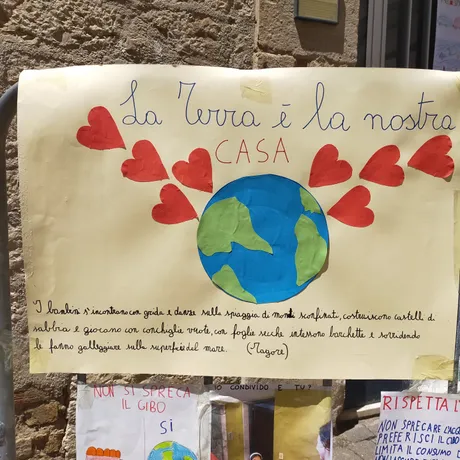 La Terra è la nostra
CASA
I bambini s'incontrano con grida e danze sulla spiaggia di mondi sconfinati, costruiscono castelli di
sabbia e giocano con conchiglie vuote, con foglie secche intessono barchette e sorridendo
le fanno galleggiare sulla superficie del mare. (Tagore)
NON SI SPRECA
IL CIBO
SÌ
IO CONDIVIDO E TU?
RISPETTA L'
NON SPRECARE L'ACQ
PREFERISCI IL CIBO
LIMITA IL CONSUMO D